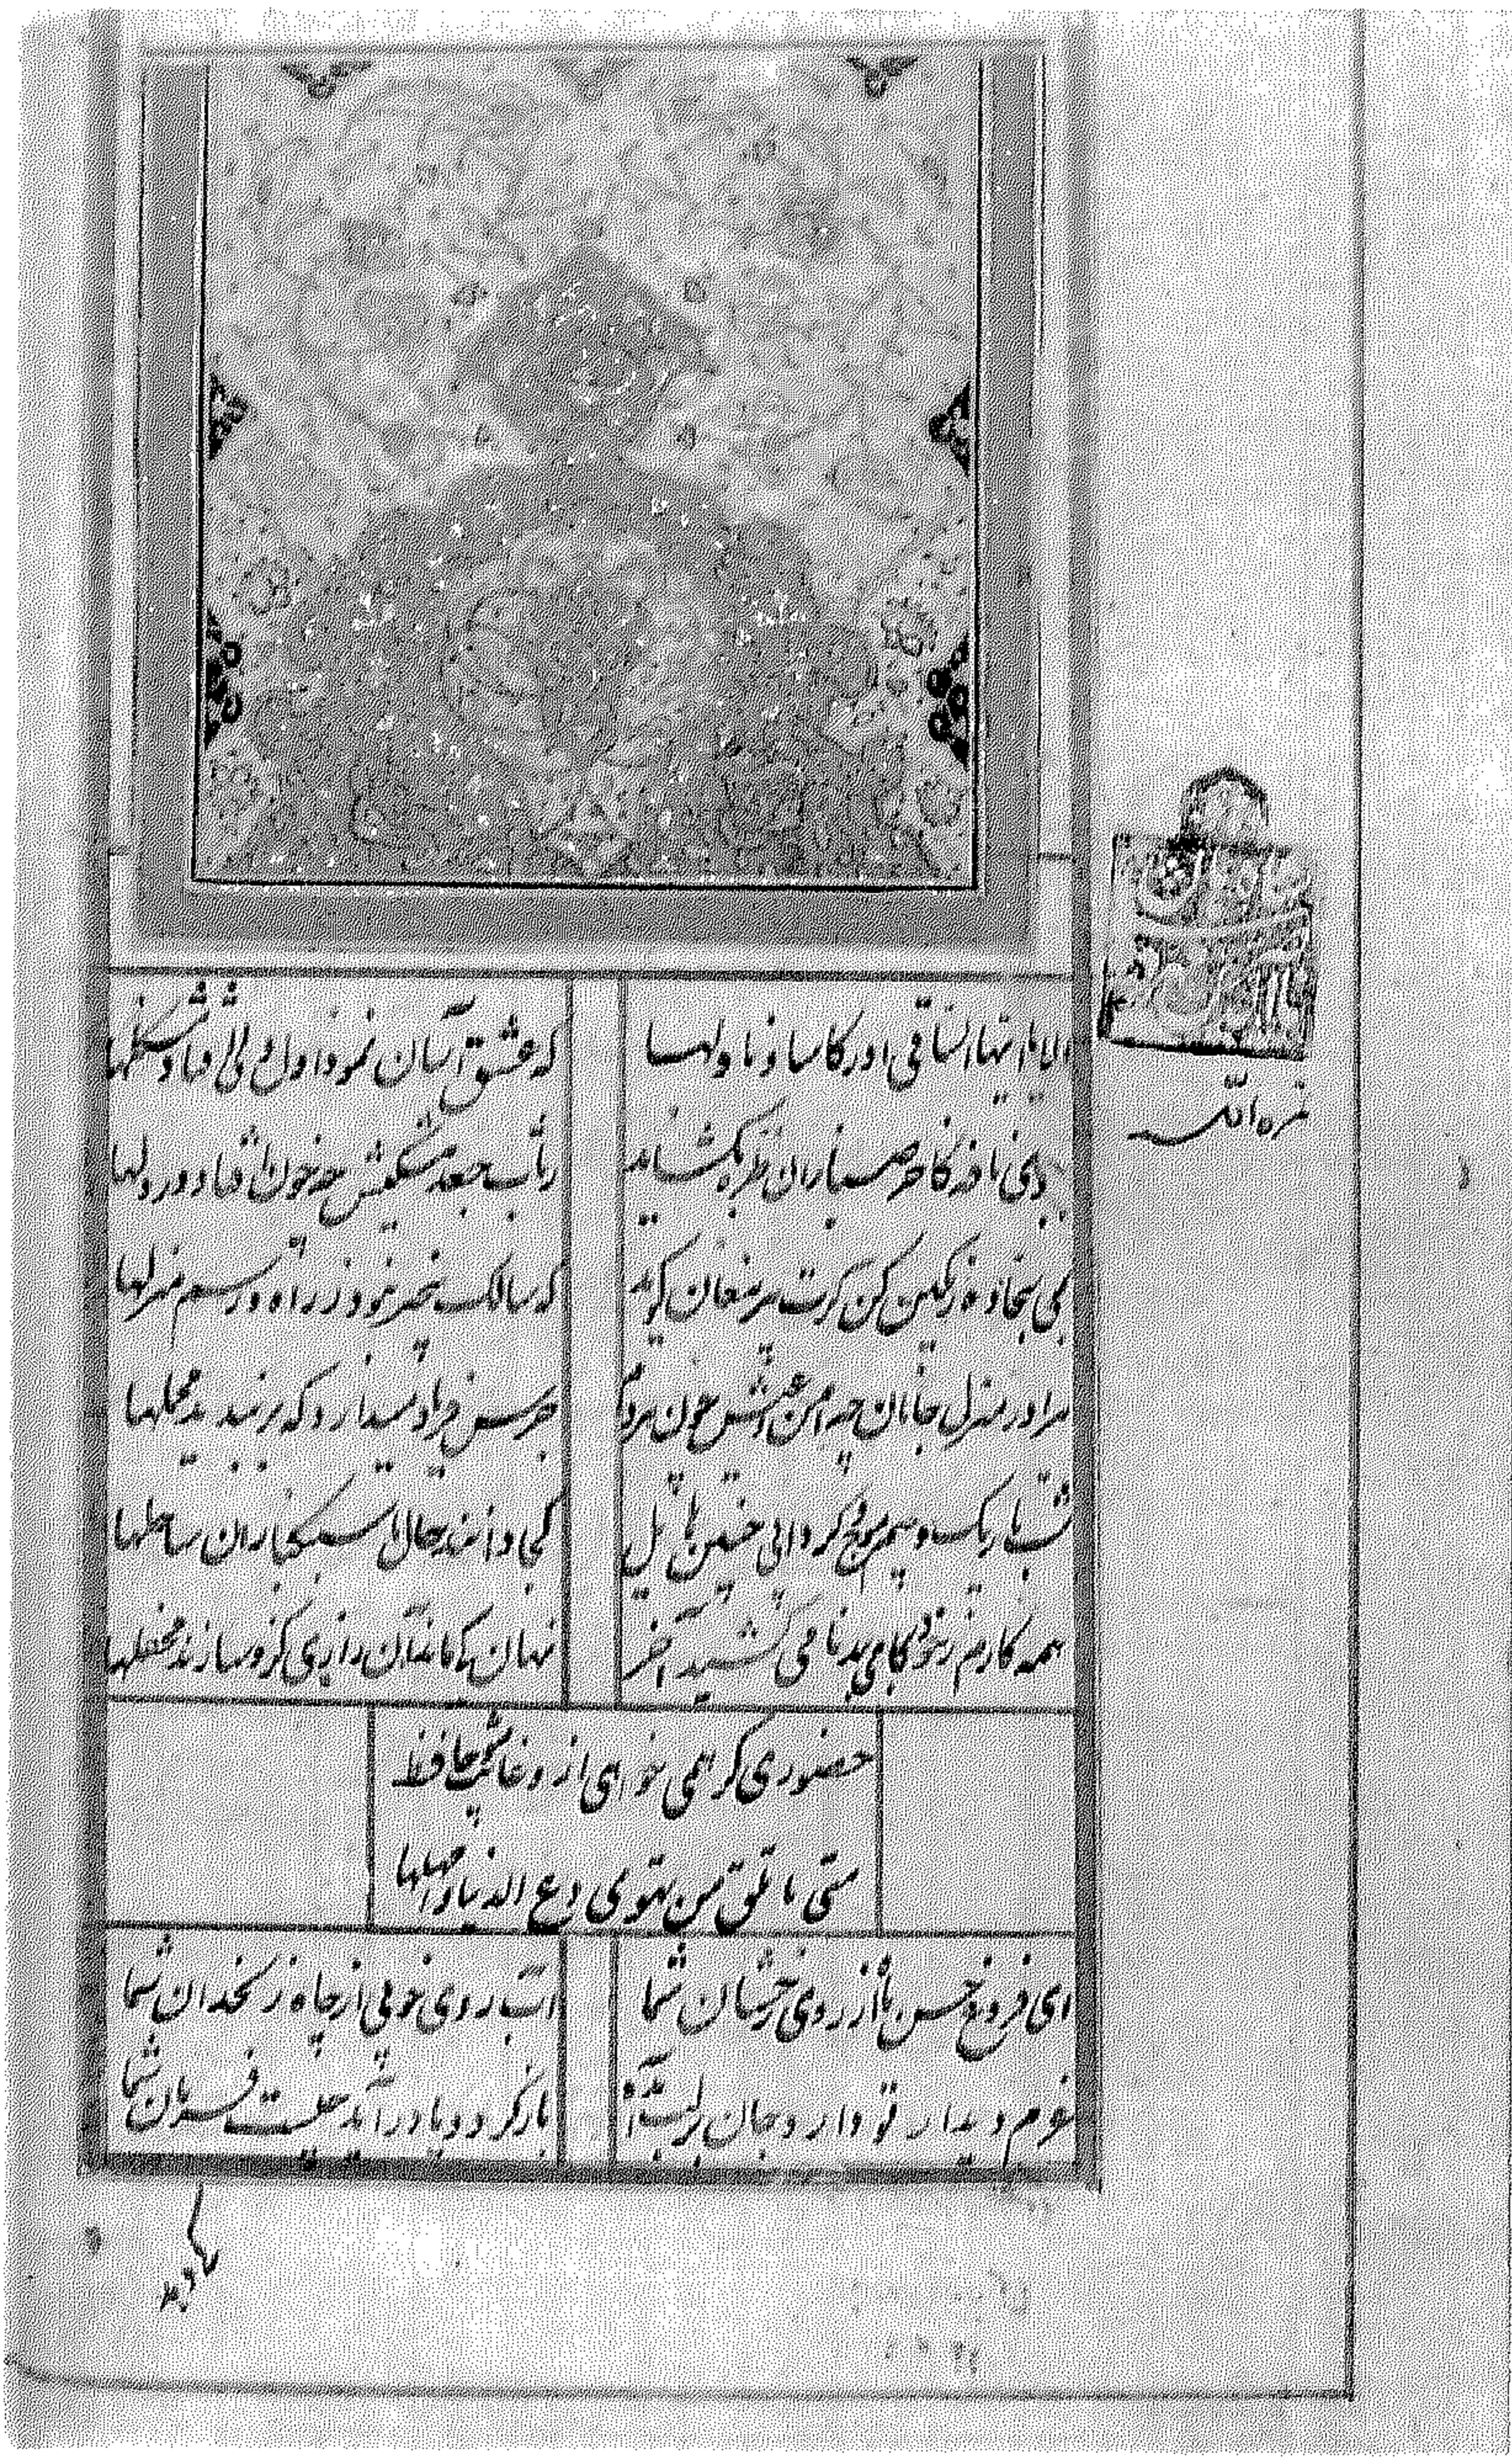 الا یا ایها الساقی ادر کاسا و ناولها که عشق آسان نمود اول ولی افتاد مشکلها
ببوی نافه کاخر صبا زان طره بکشاید ز تاب جعد مشکینش چه خون افتاد در دلها
بمی سجاده رنگین کن کرت پیر مغان کوید که سالک بیخبر نبود ز راه و رسم منزلها
مرا در منزل جانان چه امن و عیش چون هر دم جرس فریاد میدارد که بربندید محملها
شب تاریک و بیم موج و کردابی چنین هایل کجا دانند حال ما سبکباران ساحلها
همه کارم ز خودکامی ببدنامی کشید آخر نهان کی ماند آن رازی کزو سازند محفلها
حضوری کر همی خواهی ازو غایب مشو حافظ
متی ما تلق من تهوی دع الدنیا و اهملها
ای فروغ حسن ماه از روی رخشان شما آب روی خوبی از چاه زنخدان شما
عزم دیدار تو دارد جان بر لب آمده باز کردد یا درآید چیست فرمان شما